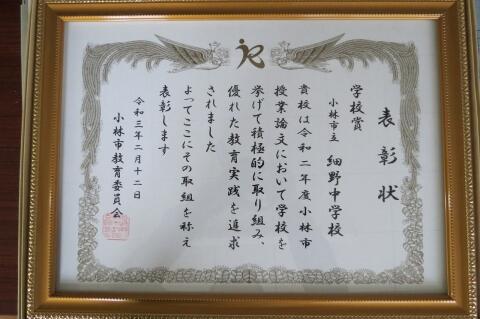 表彰状
学校賞
小林市立 細野中学校
貴校は令和二年度小林市
授業論文において学校を
挙げて積極的に取り組み、
優れた教育実践を追求
されました
よってここにその取組を称え
表彰します
令和三年二月十二日
小林市教育委員会